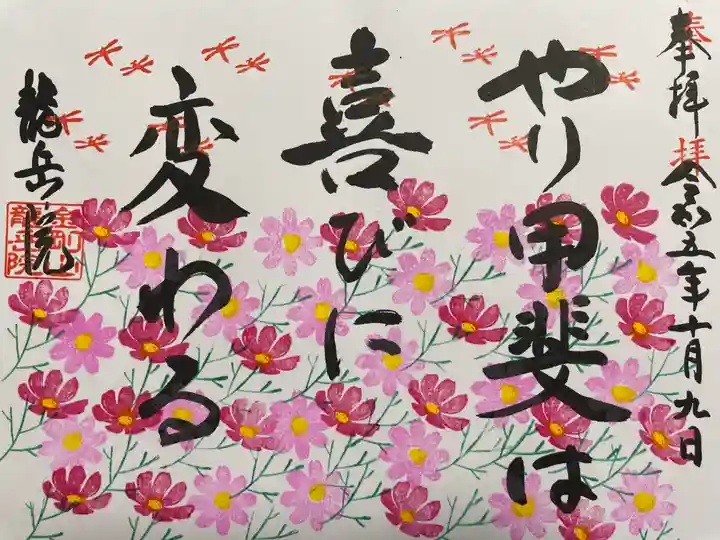 奉拝
令和五年十月九日
やり甲斐は
喜びに
変わる
龍岳院